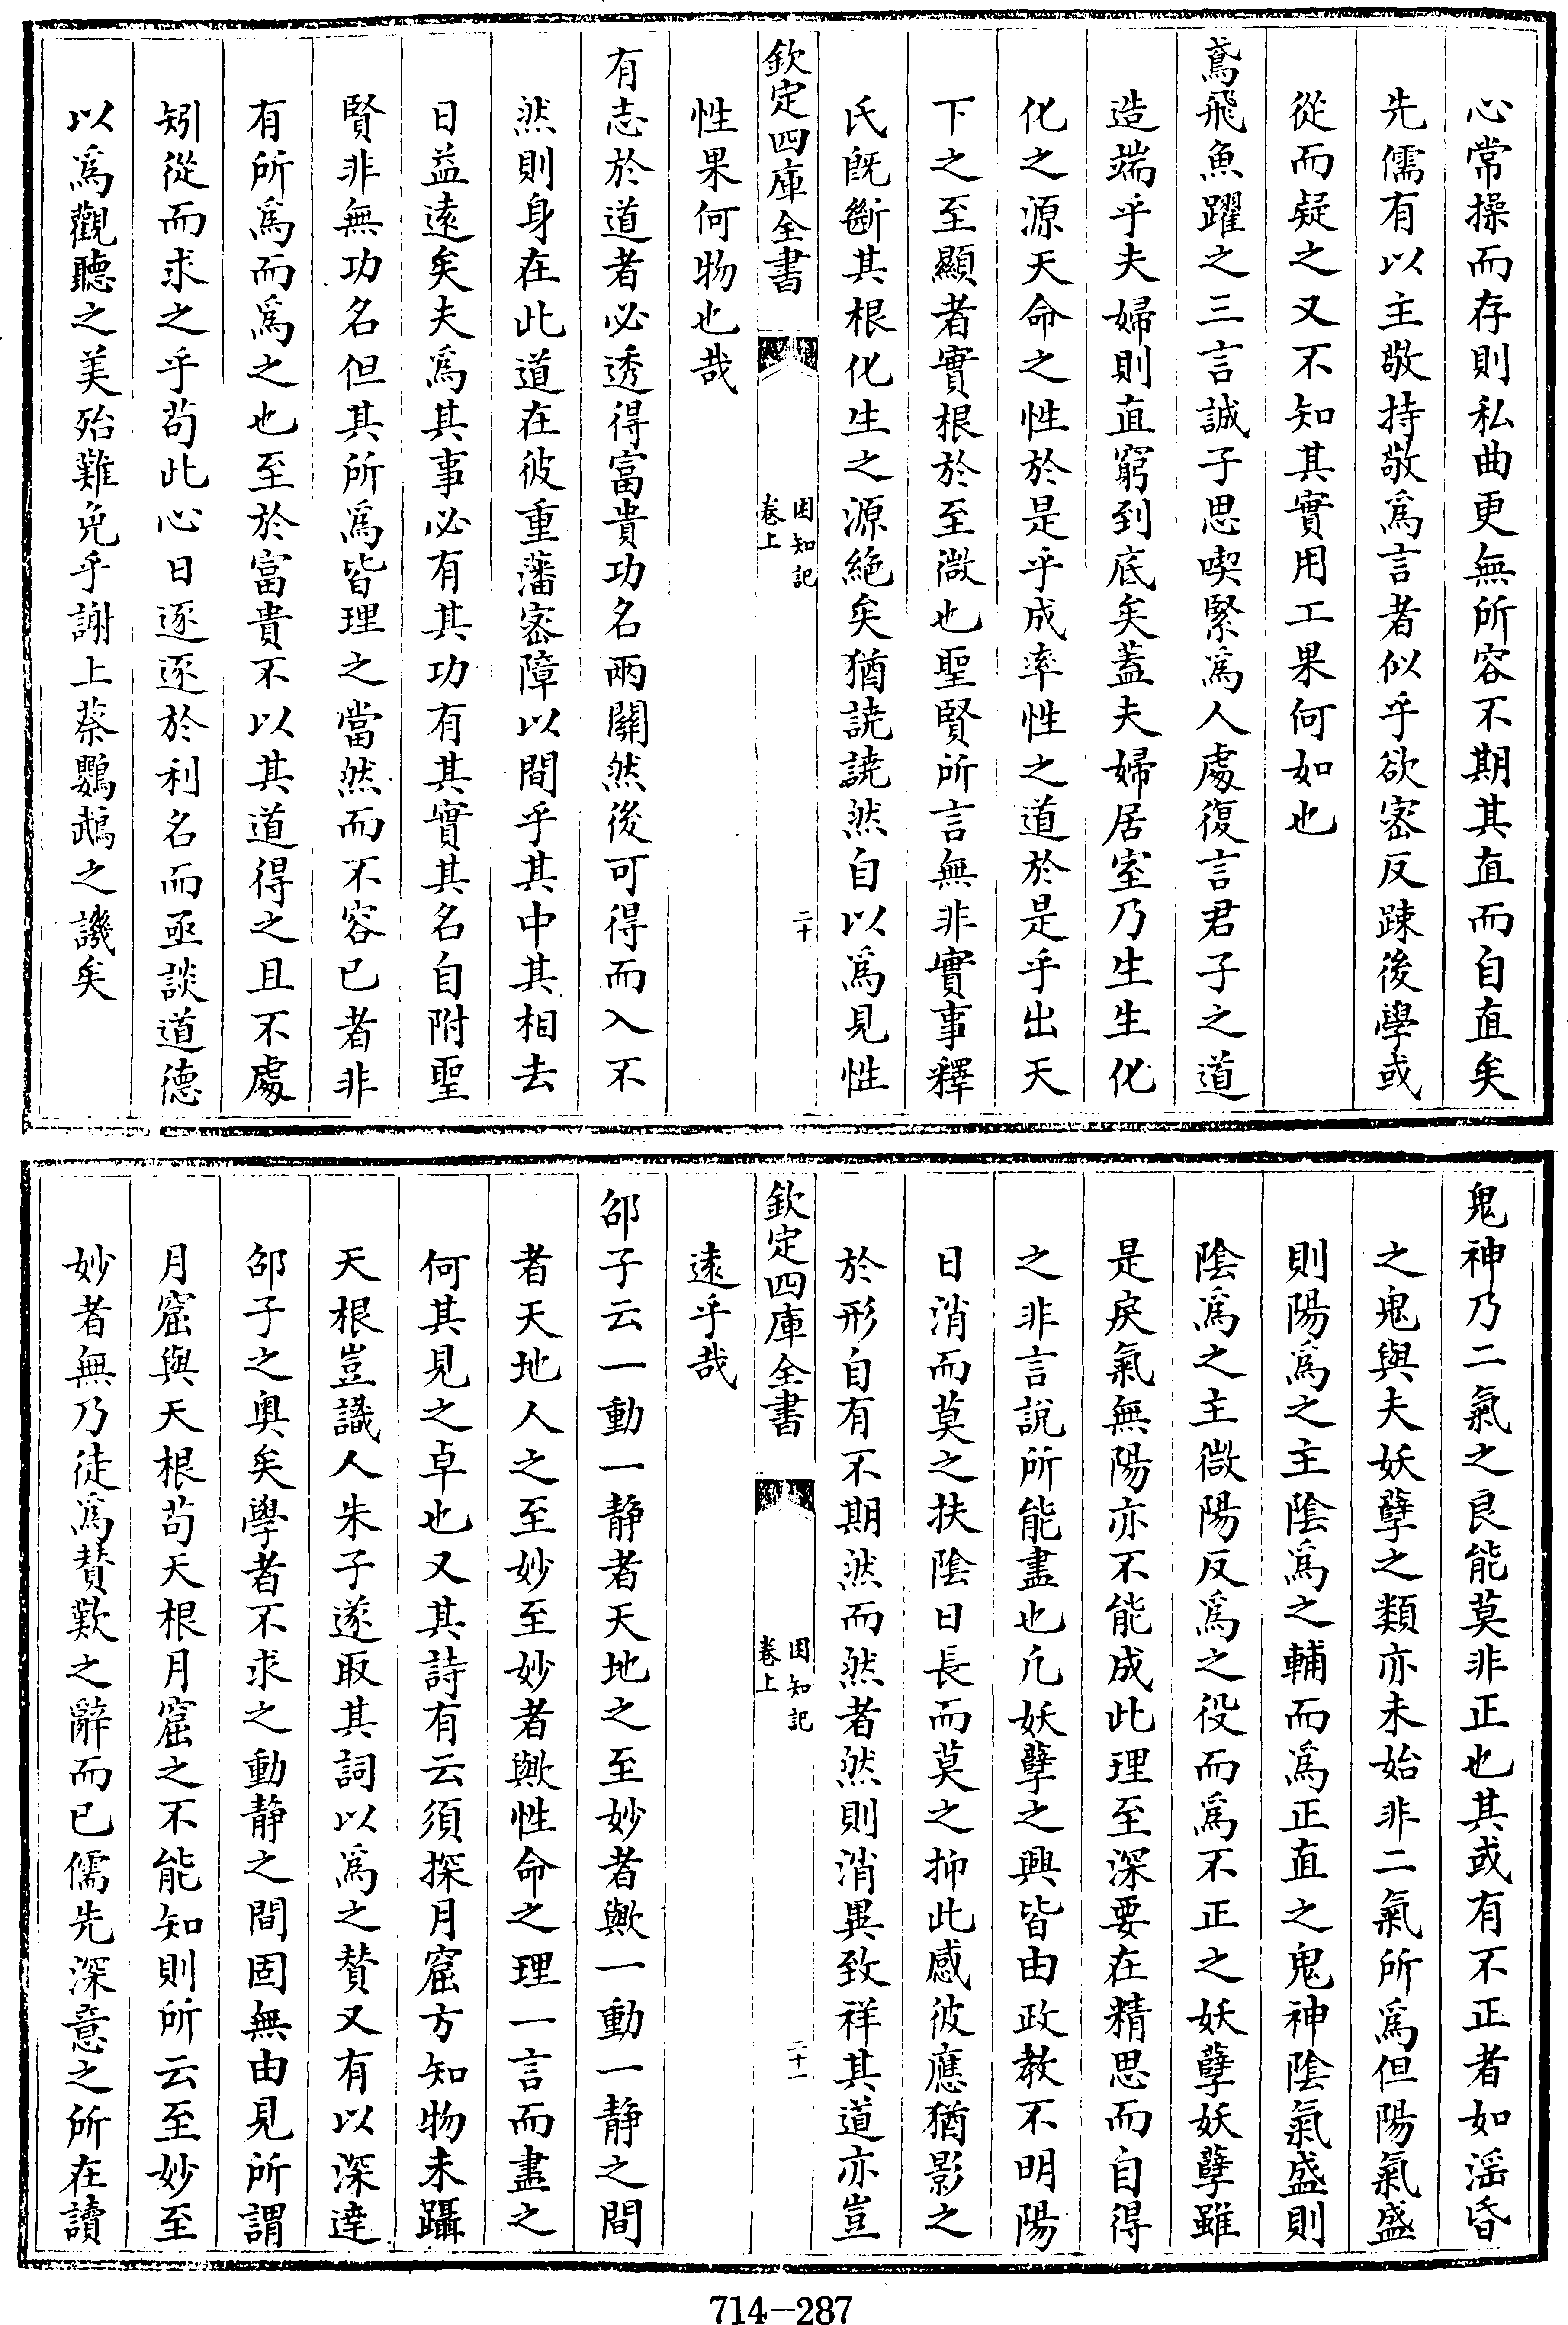 心常操而存則私曲更無所容不期其直而自直矣
先儒有以主敬持敬爲言者似乎欲密反踈後學或
從而疑之又不知其實用工果何如也
鳶飛魚躍之三言誠子思喫緊爲人處復言君子之道
造端乎夫婦則直窮到底矣蓋夫婦居室乃生生化
化之源天命之性於是乎成率性之道於是乎出天
下之至顯者實根於至微也聖賢所言無非實事釋
氏旣斷其根化生之源絕矣猶譊譊然自以爲見性
欽定四庫全書
困知記
卷上
二十
性果何物也哉
有志於道者必透得富貴功名兩關然後可得而入不
然則身在此道在彼重藩密障以間乎其中其相去
日益遠矣夫爲其事必有其功有其實其名自附聖
賢非無功名但其所爲皆理之當然而不容已者非
有所爲而爲之也至於富貴不以其道得之且不處
矧從而求之乎苟此心日逐逐於利名而亟談道德
以爲觀聽之美殆難免乎謝上蔡鸚鵡之譏矣
鬼神乃二氣之良能莫非正也其或有不正者如淫昏
之鬼與夫妖孽之類亦未始非二氣所爲但陽氣盛
則陽爲之主陰爲之輔而爲正直之鬼神陰氣盛則
陰爲之主微陽反爲之役而爲不正之妖孽妖孽雖
是戾氣無陽亦不能成此理至深要在精思而自得
之非言說所能盡也凢妖孽之興皆由政教不明陽
日消而莫之扶陰日長而莫之抑此感彼應猶影之
於形自有不期然而然者然則消異致祥其道亦豈
欽定四庫全書
困知記
卷上
二十一
遠乎哉
邵子云一動一静者天地之至妙者歟一動一静之間
者天地人之至妙至妙者歟性命之理一言而盡之
何其見之卓也又其詩有云須探月窟方知物未躡
天根豈識人朱子遂取其詞以爲之贊又有以深達
邵子之奥矣學者不求之動静之間固無由見所謂
月窟與天根苟天根月窟之不能知則所云至妙至
妙者無乃徒爲贊歎之辭而已儒先深意之所在讀
714-287